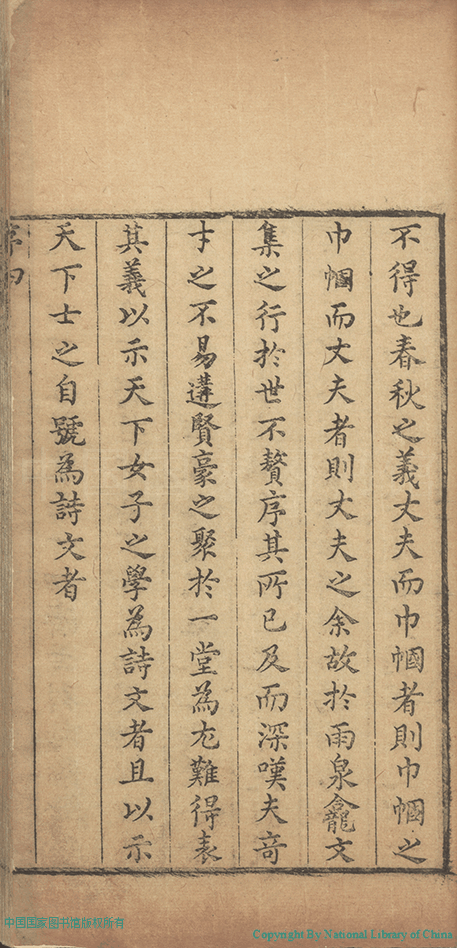 不得也春秋之義丈夫而巾幗者則巾幗之
巾幗而丈夫者則丈夫之余故於雨泉龕文
集之行於世不贅序其所已及而深嘆夫奇
才之不易遘賢豪之聚於一堂為尤難得表
其義以示天下女子之學為詩文者且以示
天下士之自號為詩文者
序四
中国国家图书馆版权所有
Copyright By National Library of China